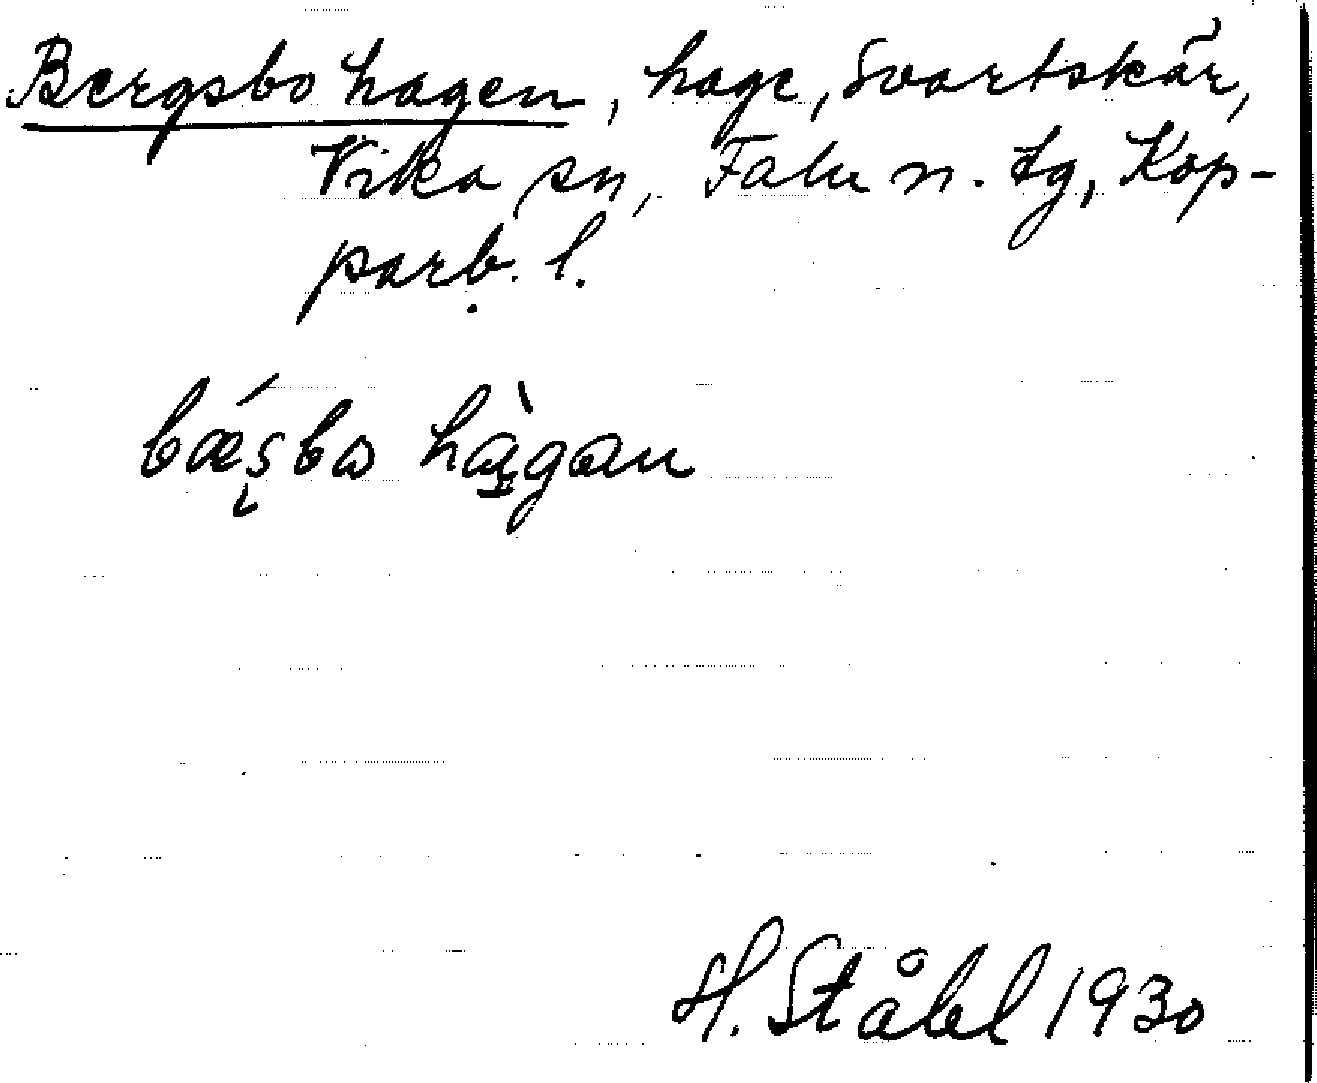 Bergsbo hagen, hage, Svartskär,
Vika sn, Falu n. tg, Kop-
parb. l.
bǽʂbo hàgan
H. Ståhl 1930